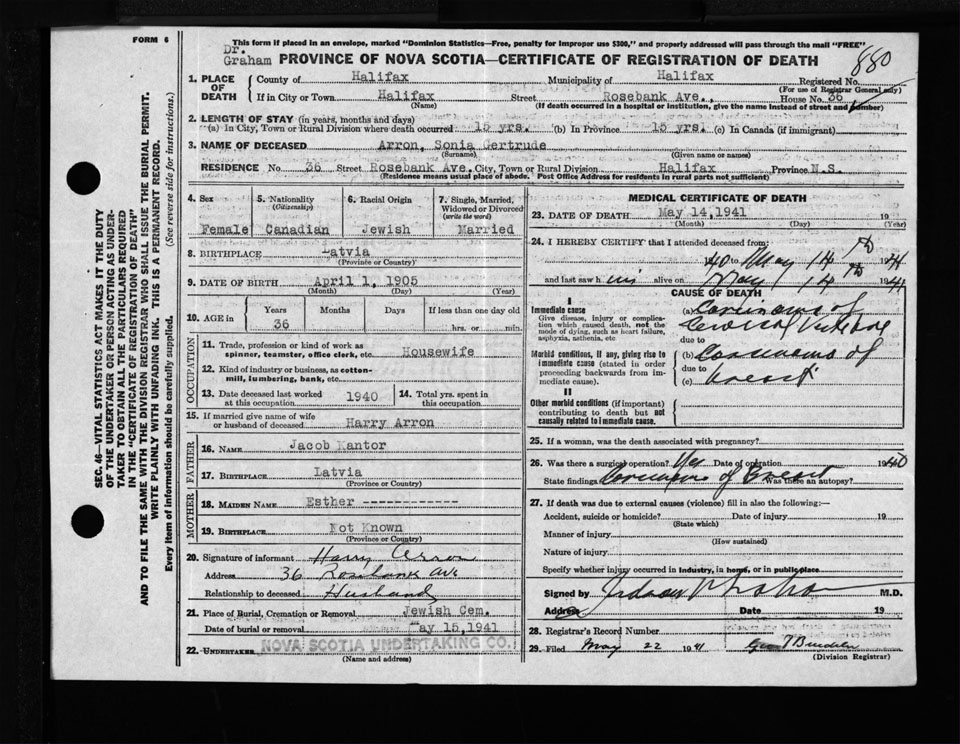 FORM 6
This form if placed in an envelope, marked "Dominion Statistics—Free, penalty for improper use $300," and properly addressed will pass through the mail "FREE"
Dr.
Graham
PROVINCE OF NOVA SCOTIA—CERTIFICATE OF REGISTRATION OF DEATH
880
1. PLACE OF DEATH
County of Halifax Municipality of Halifax Registered No.
(For use of Registrar General only)
If in City or Town Halifax Street Rosebank Ave., House No. 36
(Name) (If death occurred in a hospital or institution, give the name instead of street and number)
2. LENGTH OF STAY (in years, months and days)
(a) In City, Town or Rural Division where death occurred 15 yrs. (b) In Province 15 yrs. (c) In Canada (if immigrant)
3. NAME OF DECEASED Arron, Sonia Gertrude
(Surname) (Given name or names)
RESIDENCE No. 36 Street Rosebank Ave. City, Town or Rural Division Halifax Province N.S.
(Residence means usual place of abode. Post Office Address for residents in rural parts not sufficient)
4. Sex Female
5. Nationality (Citizenship) Canadian
6. Racial Origin Jewish
7. Single, Married, Widowed or Divorced (write the word) Married
8. BIRTHPLACE Latvia
(Province or Country)
9. DATE OF BIRTH April 1, 1905
(Month) (Day) (Year)
10. AGE in Years 36 Months Days If less than one day old hrs. or min.
OCCUPATION
11. Trade, profession or kind of work as spinner, teamster, office clerk, etc. Housewife
12. Kind of industry or business, as cotton-mill, lumbering, bank, etc.
13. Date deceased last worked at this occupation 1940
14. Total yrs. spent in this occupation
15. If married give name of wife or husband of deceased Harry Arron
FATHER
16. NAME Jacob Kantor
17. BIRTHPLACE Latvia
(Province or Country)
MOTHER
18. MAIDEN NAME Esther -----------
19. BIRTHPLACE Not Known
(Province or Country)
20. Signature of informant Harry Arron
Address 36 Rosebank Ave
Relationship to deceased Husband
21. Place of Burial, Cremation or Removal Jewish Cem.
Date of burial or removal May 15, 1941
22. UNDERTAKER NOVA SCOTIA UNDERTAKING CO.
(Name and address)
MEDICAL CERTIFICATE OF DEATH
23. DATE OF DEATH May 14, 1941 19
(Month) (Day) (Year)
24. I HEREBY CERTIFY that I attended deceased from:
40 to May 14th 1941
and last saw h alive on May 14th 1941
CAUSE OF DEATH
I
Immediate cause
Give disease, injury or complication which caused death, not the mode of dying, such as heart failure, asphyxia, asthenia, etc
(a)
due to
Morbid conditions, if any, giving rise to immediate cause (stated in order proceeding backwards from immediate cause).
(b)
due to
(c) breast
II
Other morbid conditions (if important) contributing to death but not causally related to immediate cause.
25. If a woman, was the death associated with pregnancy?
26. Was there a surgical operation? Yes Date of operation 1940
State findings of breast Was there an autopsy?
27. If death was due to external causes (violence) fill in also the following:—
Accident, suicide or homicide? Date of injury 19
(State which)
Manner of injury
(How sustained)
Nature of injury
Specify whether injury occurred in industry, in home, or in public place
Signed by M.D.
Address Date 19
28. Registrar's Record Number
29. Filed May 22 1941
(Division Registrar)
SEC. 46—VITAL STATISTICS ACT MAKES IT THE DUTY
OF THE UNDERTAKER OR PERSON ACTING AS UNDER-
TAKER TO OBTAIN ALL THE PARTICULARS REQUIRED
IN THE "CERTIFICATE OF REGISTRATION OF DEATH"
AND TO FILE THE SAME WITH THE DIVISION REGISTRAR WHO SHALL ISSUE THE BURIAL PERMIT.
WRITE PLAINLY WITH UNFADING INK. THIS IS A PERMANENT RECORD.
Every item of information should be carefully supplied. (See reverse side for instructions.)